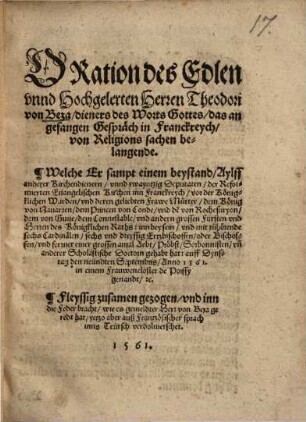 17.
ORation des Edlen
vnnd Hochgelerten Herren Theodori
von Beza/dieners des Worts Gottes/das an
gefangen Gespräch in Franckreych/
von Religions sachen be-
langende.
¶ Welche Er sampt einem beystand/Aylff
anderer Kirchendienern/ vnnd zwayntzig Deputaten/der Refor
mierten Euangelischen Kirchen inn Franckreych/vor der Königk
lichen Wirden/vnd deren geliebten Frawe Mütter/dem König
von Nauarren/dem Princen von Conde/vnd dē von Rochesuryon/
dem von Guise/dem Connestable/vnd andern grossen Fürsten vnd
Herren des Königklichen Raths: vnn beysein/ vnd mit zůhörende
sechs Cardinälen/sechs vnd dreyssig Ertzbischoffen/oder Bischof
fen/vnd ferner einer grossen antzal Aebt/Pröbst/Sorbonisten/vñ
anderer Scholastische Doctorn gehabt hatt: auff Dyns
tag den neündten Septembris/Anno 1561.
in einem Frauwencloster de Poissy
genandt/ɾc.
¶ Fleyssig zusamen gezogen/vnd inn
die Feder bracht/wie es gemeldter Herr von Beza ge
redt hat/yetzo aber auß Frantzösischer sprach
inns Teütsch verdolmetschet.
1561.